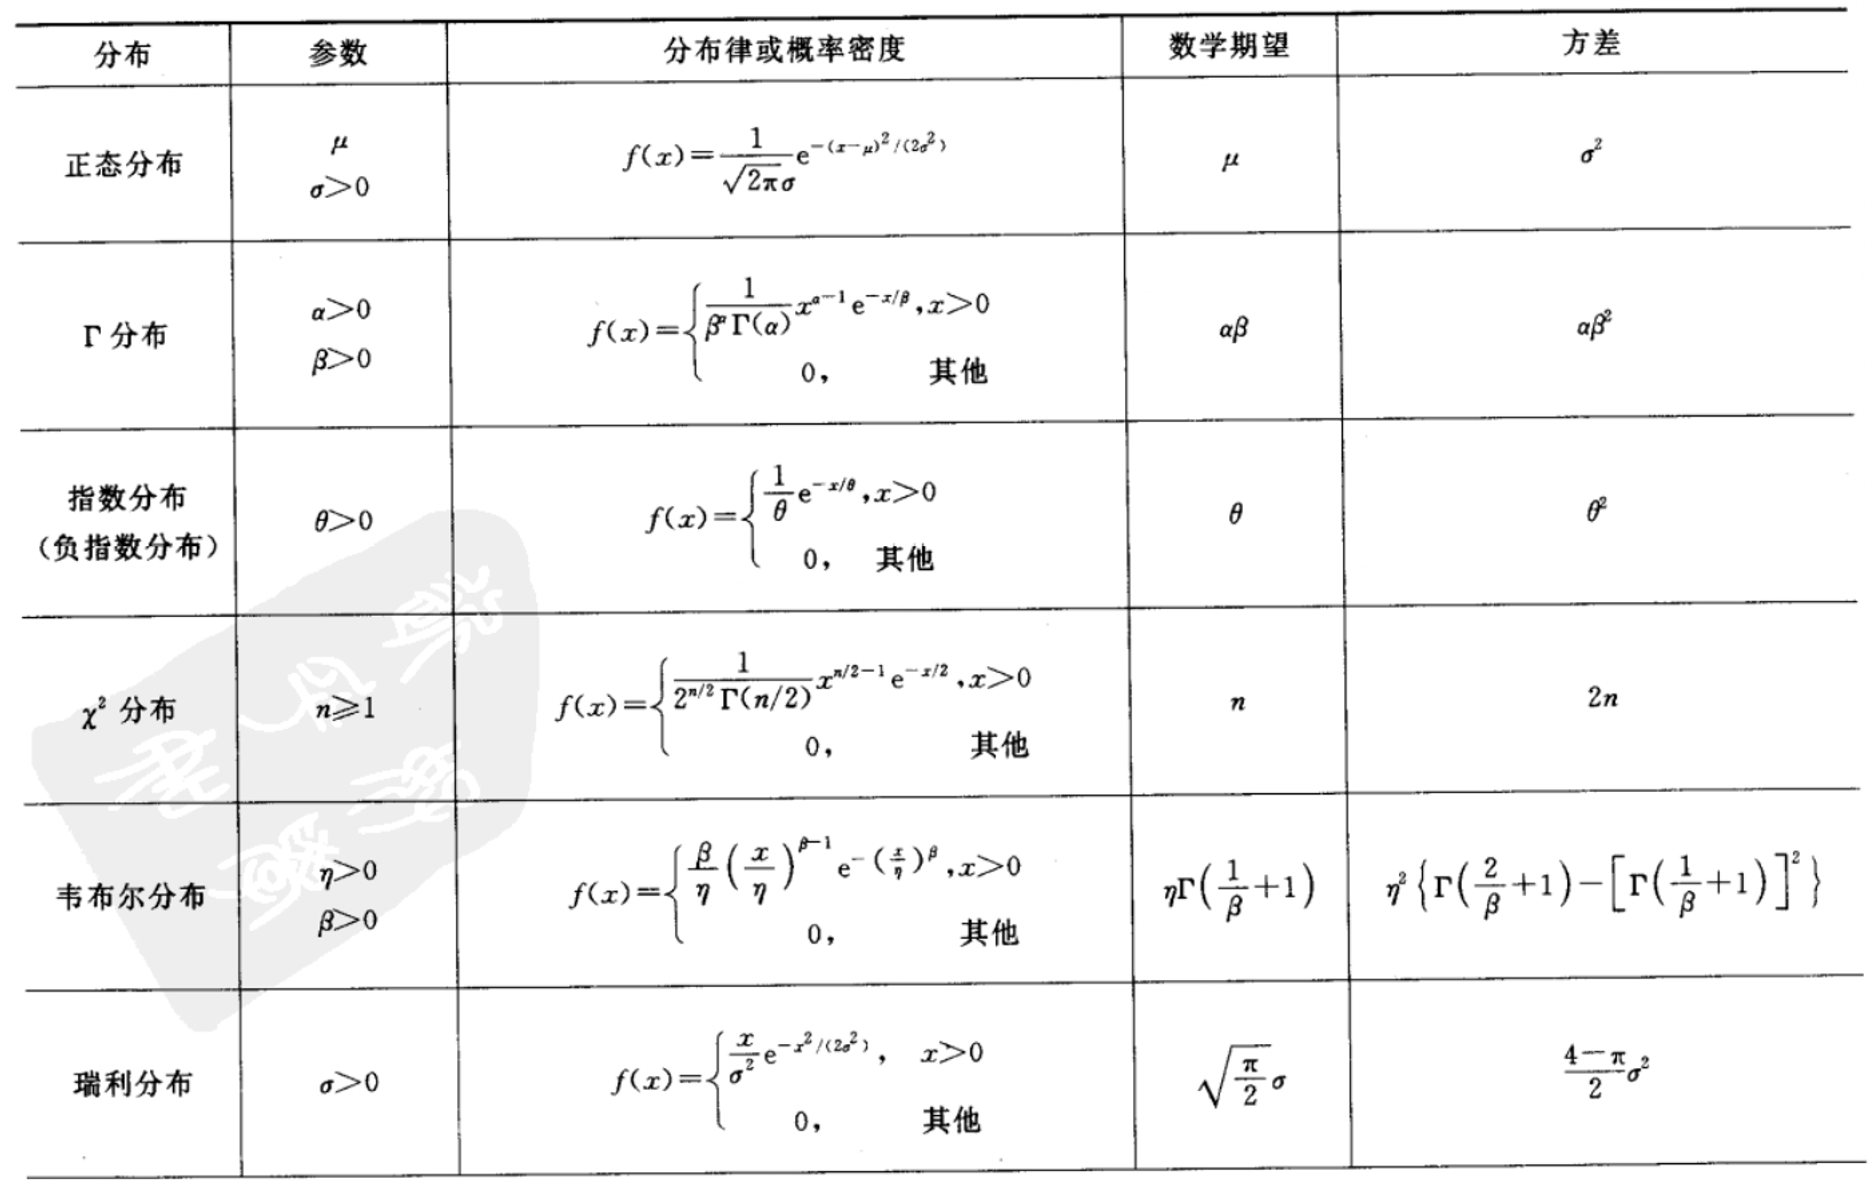 分布 参数 分布律或概率密度 数学期望 方差
正态分布 μ σ>0 f(x)=\frac{1}{\sqrt{2π}σ}e^{-(x-μ)^2/(2σ^2)} μ σ^2
Γ分布 α>0 β>0 f(x)=\begin{cases}\frac{1}{β^αΓ(α)}x^{α-1}e^{-x/β},x>0\\0, 其他\end{cases} αβ αβ^2
指数分布 (负指数分布) θ>0 f(x)=\begin{cases}\frac{1}{θ}e^{-x/θ},x>0\\0, 其他\end{cases} θ θ^2
χ^2 分布 n⩾1 f(x)=\begin{cases}\frac{1}{2^{n/2}Γ(n/2)}x^{n/2-1}e^{-x/2},x>0\\0, 其他\end{cases} n 2n
韦布尔分布 η>0 β>0 f(x)=\begin{cases}\frac{β}{η}(\frac{x}{η})^{β-1}e^{-(\frac{x}{η})^β},x>0\\0, 其他\end{cases} ηΓ(\frac{1}{β}+1) η^2{Γ(\frac{2}{β}+1)-[Γ(\frac{1}{β}+1)]^2}
瑞利分布 σ>0 f(x)=\begin{cases}\frac{x}{σ^2}e^{-x^2/(2σ^2)}, x>0\\0, 其他\end{cases} \sqrt{\frac{π}{2}}σ \frac{4-π}{2}σ^2